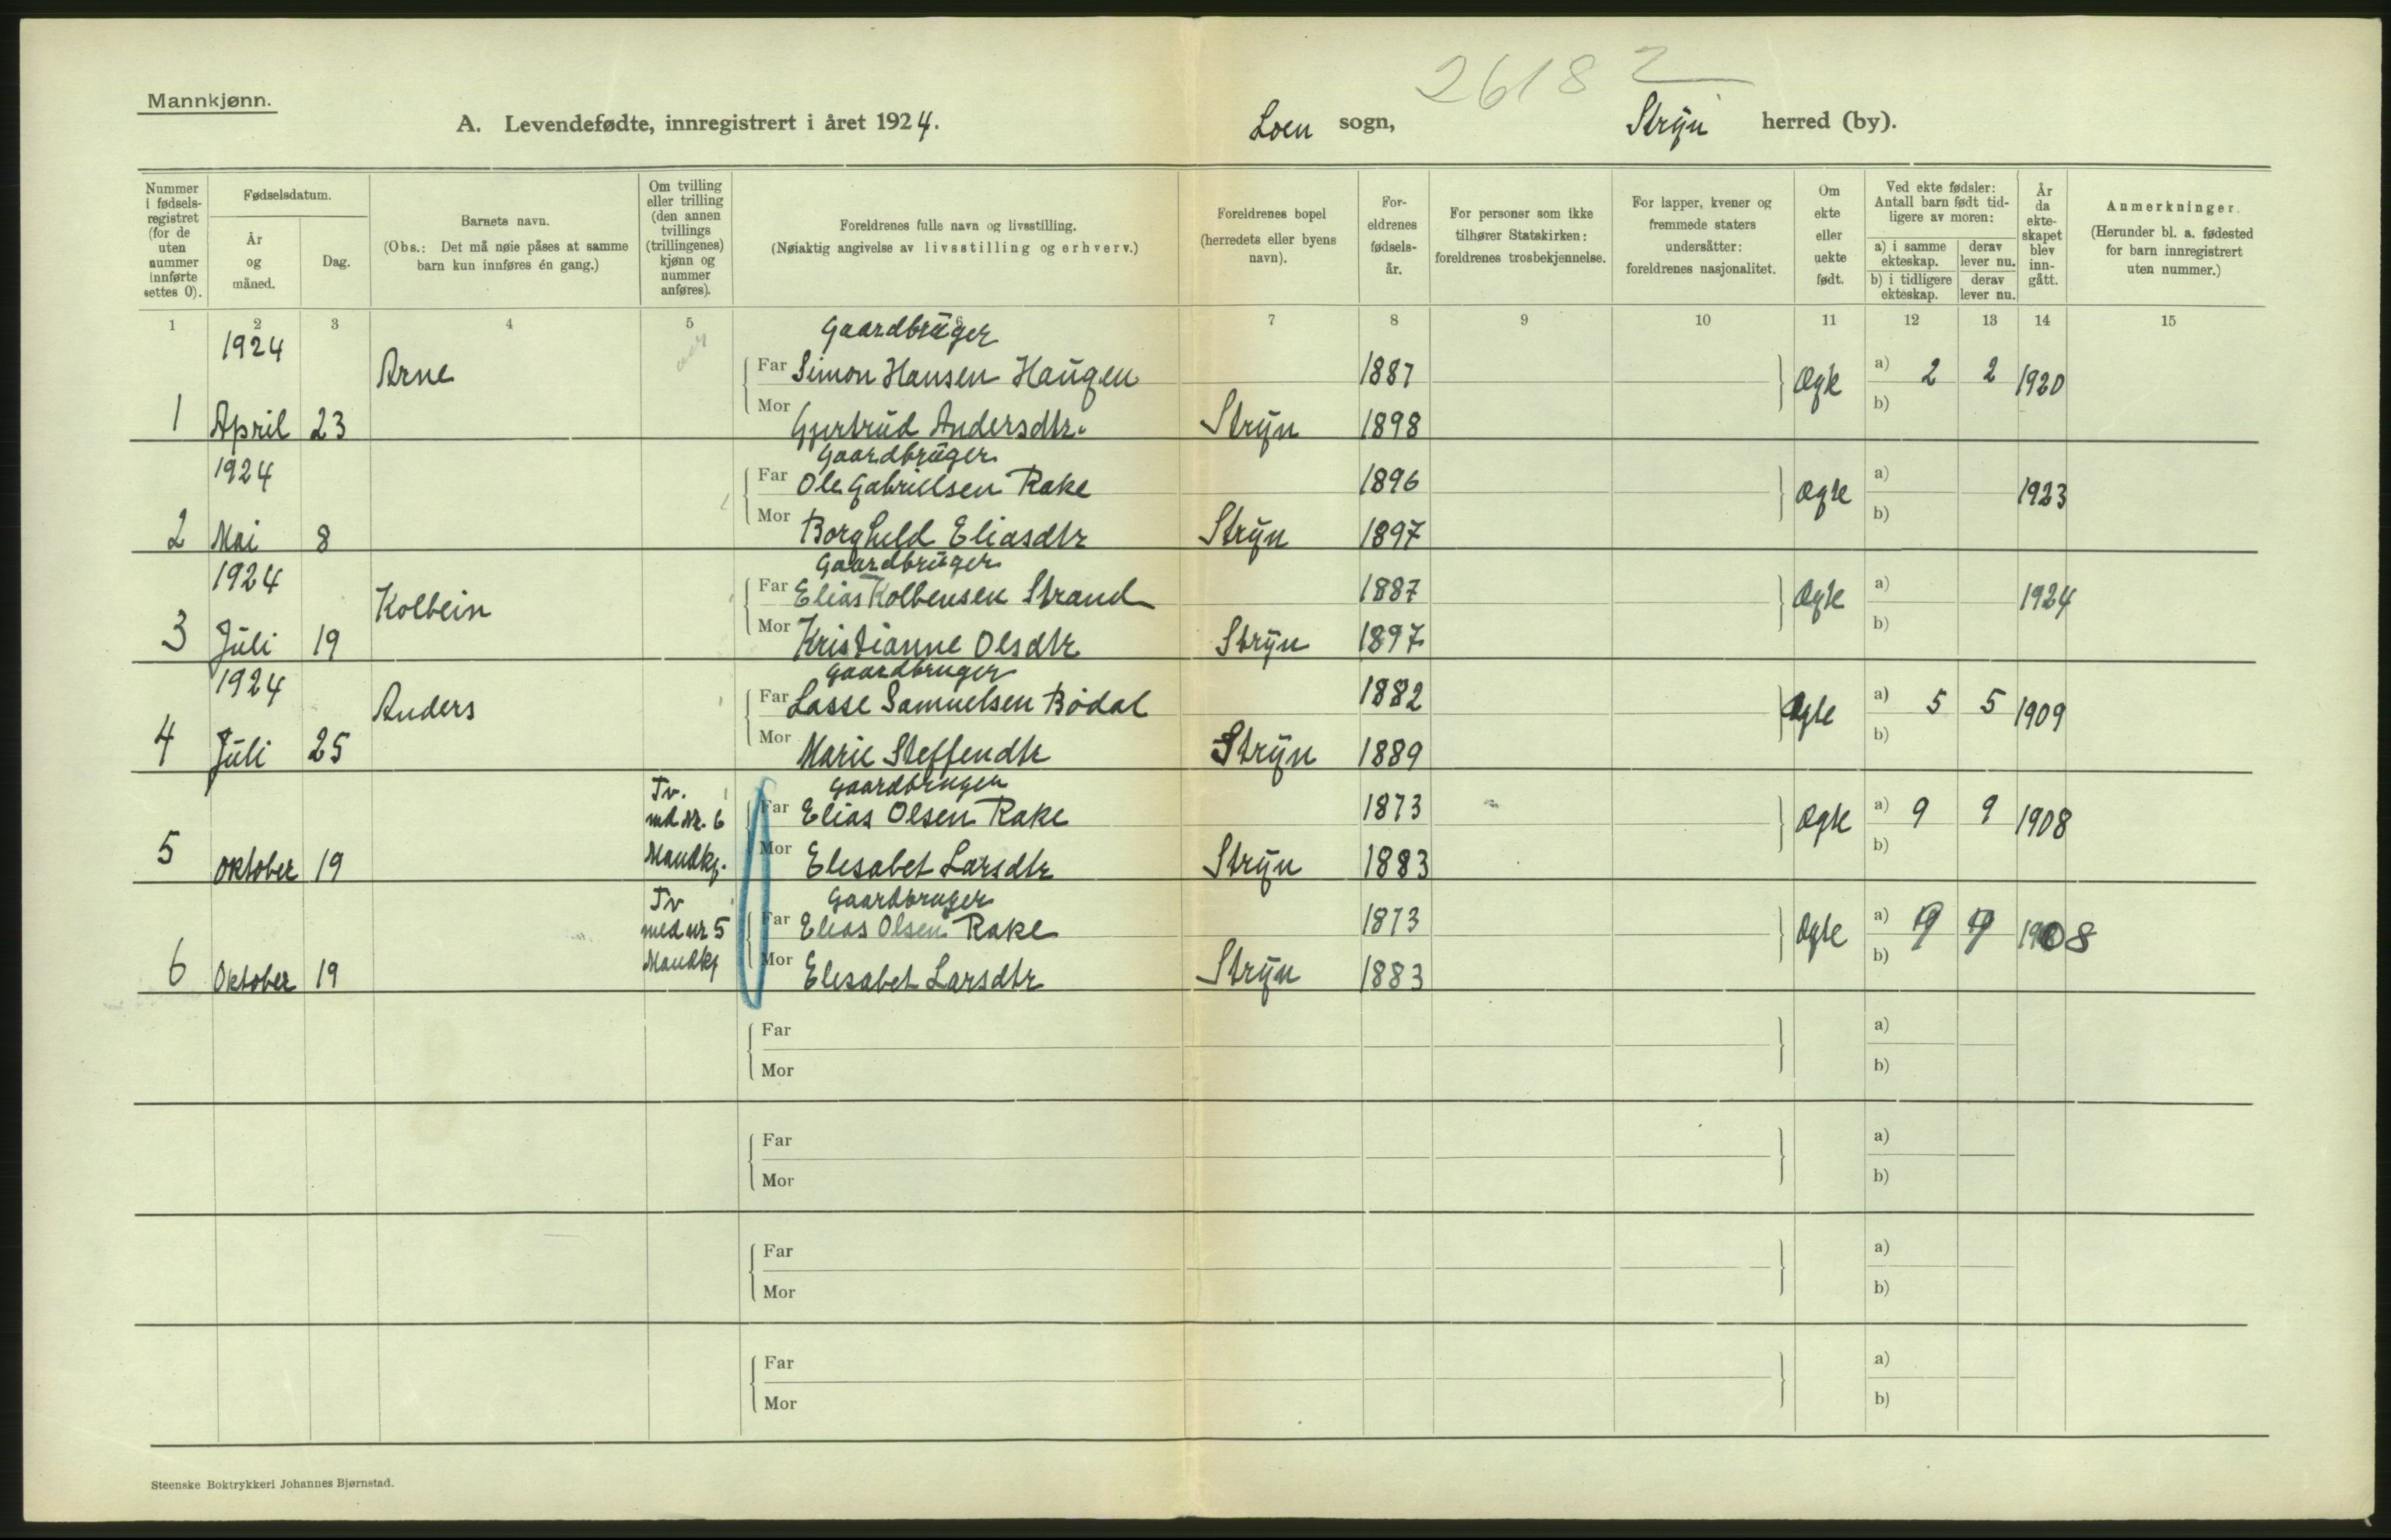 2618 2
Mannkjønn.
A. Levendefødte, innregistrert i året 1924. Loen sogn, Stryn herred (by).
Nummer i fødsels-registret (for de uten nummer innførte settes 0).
Fødselsdatum.
År og måned.
Dag.
Barnets navn.
(Obs.: Det må nøie påses at samme barn kun innføres én gang.)
Om tvilling eller trilling (den annen tvillings (trillingenes) kjønn og nummer anføres).
Foreldrenes fulle navn og livsstilling.
(Nøiaktig angivelse av livsstilling og erhverv.)
Foreldrenes bopel (herredets eller byens navn).
For-eldrenes fødsels-år.
For personer som ikke tilhører Statskirken: foreldrenes trosbekjennelse.
For lapper, kvener og fremmede staters undersåtter: foreldrenes nasjonalitet.
Om ekte eller uekte født.
Ved ekte fødsler: Antall barn født tid-ligere av moren:
a) i samme ekteskap.
derav lever nu.
b) i tidligere ekteskap.
derav lever nu.
År da ekte-skapet blev inn-gått.
Anmerkninger.
(Herunder bl. a. fødested for barn innregistrert uten nummer.)
1 2 3 4 5 6 7 8 9 10 11 12 13 14 15
1924 Gaardbrüger
Arne Far Simon Hansen Haugen 1887 Ægte a) 2 2 1920
1 April 23 Mor Gjertrüd Andersdtr. Strÿn 1898 b)
1924 Gaardbrüger
Far Ole Gabrielsen Rake 1896 Ægte a) 1923
2 Mai 8 Mor Borghild Eliasdtr Strÿn 1897 b)
1924 Gaardbrüger
Kolbein Far Elias Kolbensen Strand 1887 Ægte a) 1924
3 Jüli 19 Mor Kristianne Olsdtr Strÿn 1897 b)
1924 Gaardbruger
Anders Far Lasse Samuelsen Bødal 1882 Ægte a) 5 5 1909
4 Jüli 25 Mor Marie Steffendtr Strÿn 1889 b)
Tv. Gaardbruger
med Nr. 6 Far Elias Olsen Rake 1873 Ægte a) 9 9 1908
5 Oktober 19 Mandkj. Mor Elesabet Larsdtr Strÿn 1883 b)
Tv Gaardbruger
med nr 5 Far Elias Olsen Rake 1873 Ægte a) 9 9 1908
6 Oktober 19 Mandkj Mor Elesabet Larsdtr Strÿn 1883 b)
Far a)
Mor b)
Far a)
Mor b)
Far a)
Mor b)
Far a)
Mor b)
Steenske Boktrykkeri Johannes Bjørnstad.